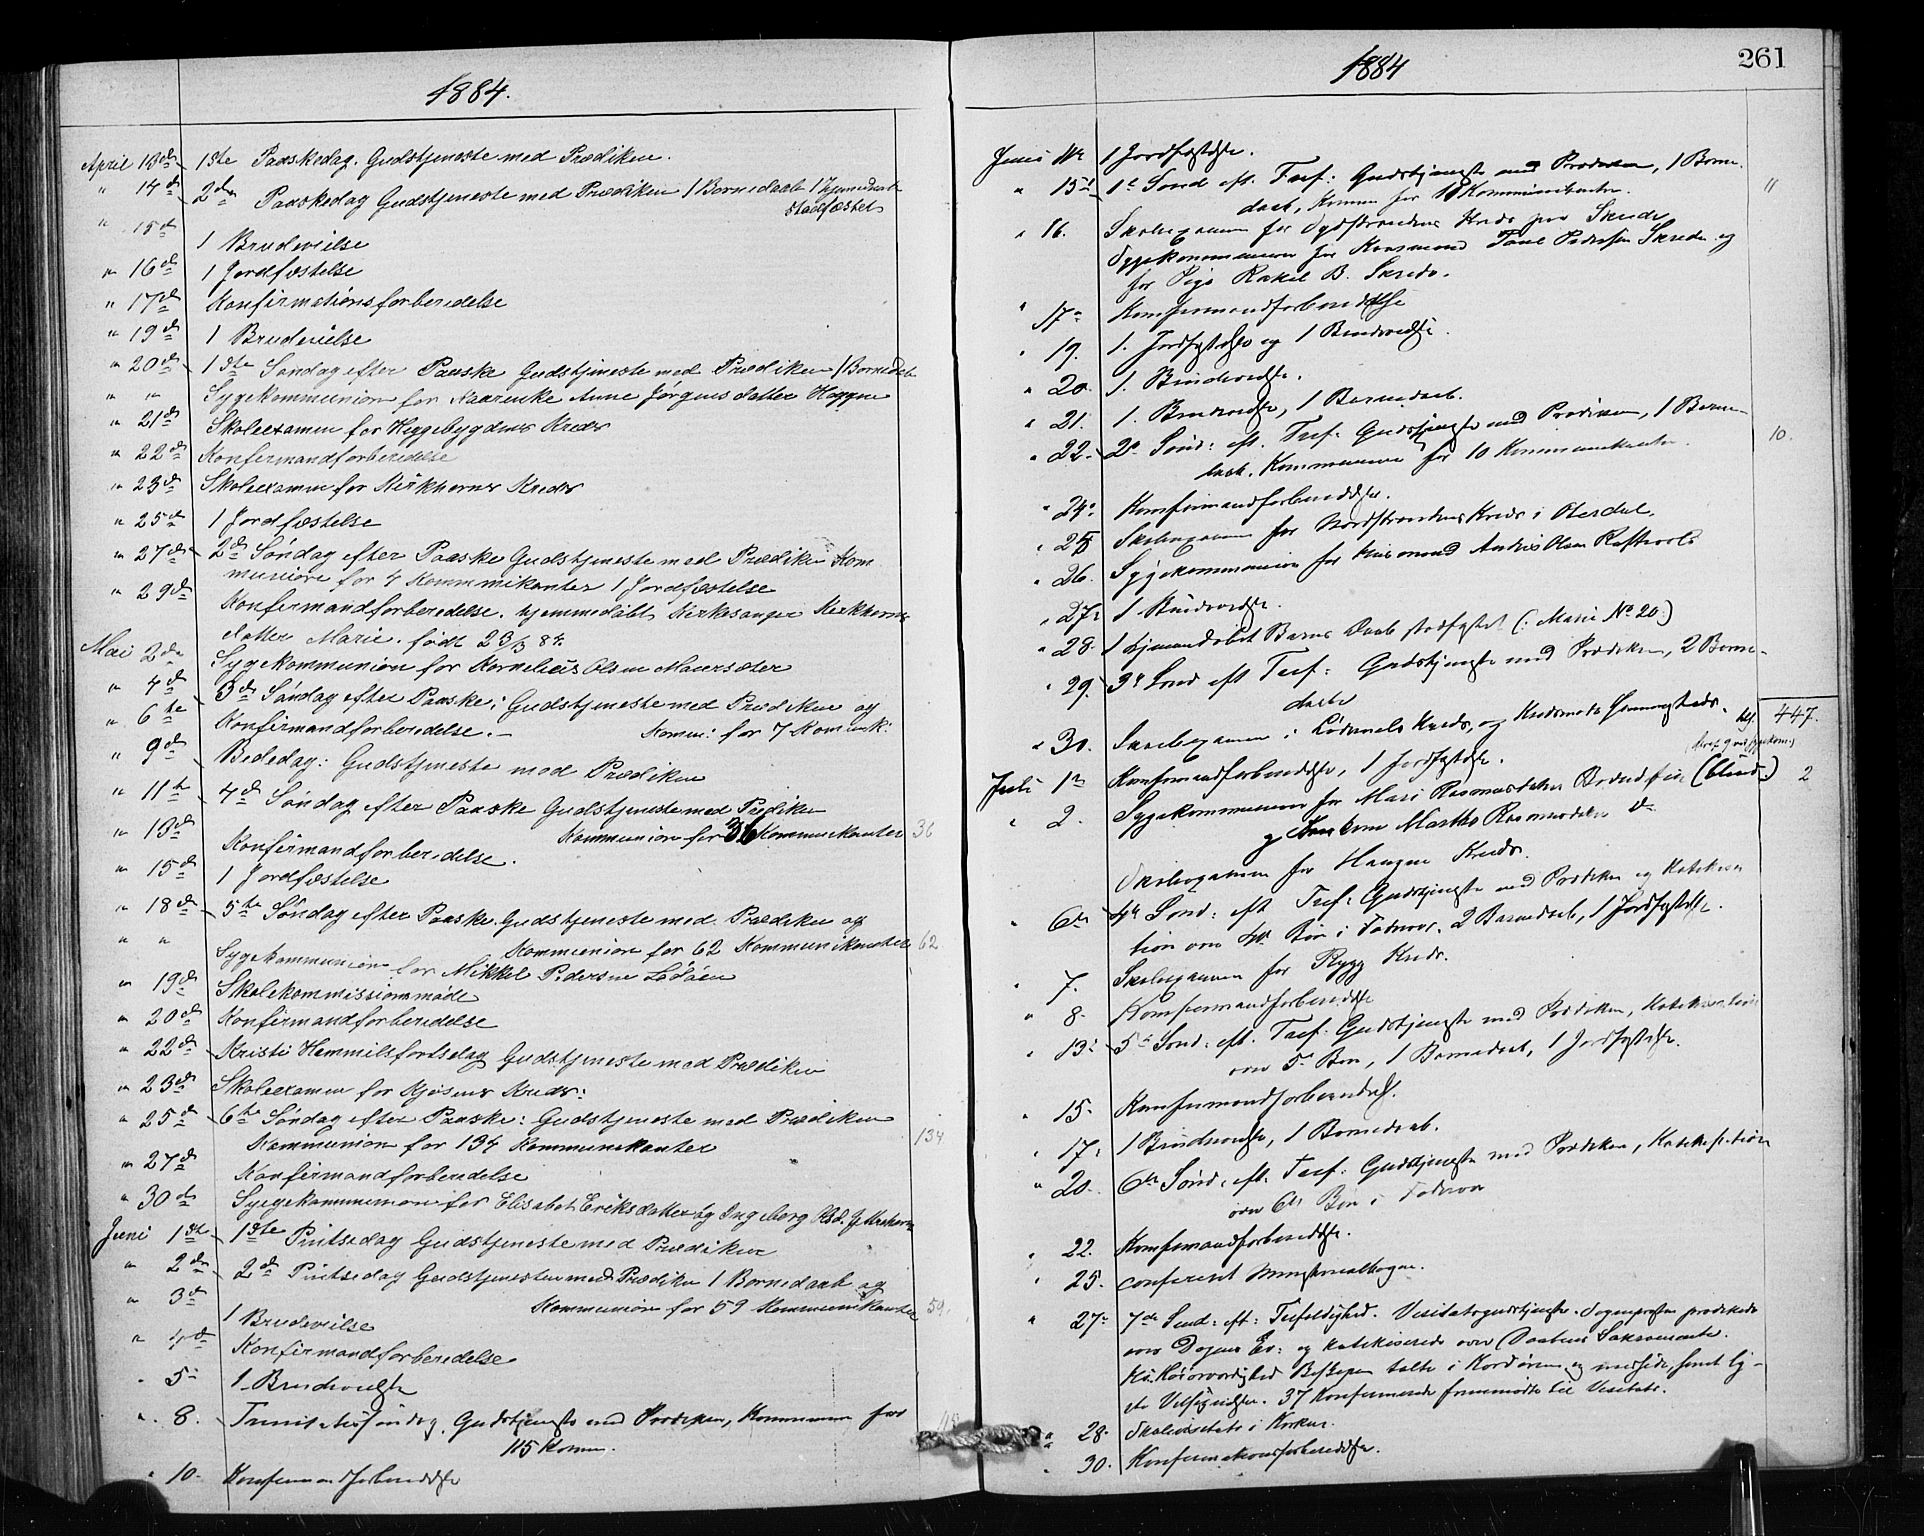 1884.
April 13de 1ste Paaskedag. Gudstjeneste med Prædiken.
" 14de 2den Paaskedag Gudstjeneste med Prædiken 1 Barnedaab 1 hjemmedaab
stadfæstet
" 15de 1 Brudevielse
" 16de 1 Jordfæstelse
" 17de Konfirmationsforberedelse
" 19de 1 Brudevielse
" 20de 1ste Søndag efter Paaske Gudstjeneste med Prædiken 1 Barnedaab
" " Sygekommunion for Anne Jørgensdatter
" 21de Skoleexamen for Heggebygdens Kreds
" 22de Konfirmandforberedelse
" 23de Skoleexamen for Kirkhorns Kreds
" 25de 1 Jordfæstelse
" 27de 2den Søndag efter Paaske Gudstjeneste med Prædiken Kom
munion for 4 Kommunikanter 1 Jordfæstelse
" 29de Konfirmandforberedelse. hjemmedøbt Kirkesanger Kirkhorns
datter Marie. født 23/3 84.
Mai 2den Sygekommunion for Kornelius Olsen
" 4de 3de Søndag efter Paaske: Gudstjeneste med Prædiken og
Komm: for 7 Komunk:
" 6te Konfirmandforberedelse.
" 9de Bededag: Gudstjeneste med Prædiken
" 11te 4de Søndag efter Paaske Gudstjeneste med Prædiken
Kommunion for 36 Kommunikanter 36
" 13de Konfirmandforberedelse.
" 15de 1 Jordfæstelse
" 18de 5te Søndag efter Paaske. Gudstjeneste med Prædiken og
Kommunion for 62 Kommunikanter 62
" " Sygekommunion for Mikkel Pedersen
" 19de Skolekommissionsmøde
" 20de Konfirmandforberedelse
" 22de Kristi Himmelfartsdag Gudstjeneste med Prædiken
" 23de Skoleexamen for Kjøsens Kreds:
" 25de 6te Søndag efter Paaske: Gudstjeneste med Prædiken
Kommunion for 134 Kommunikanter 134
" 27de Konfirmandforberedelse
" 30de Sygekommunion for Elisabet Eriksdatter og Ingeborg Olsd.
Juni 1ste 1ste Pintsedag Gudstjeneste med Prædiken
" 2den 2den Pintsedag Gudstjeneste med Prædiken 1 Barnedaab og
Kommunion for 59 Kommunikanter 59.
" 3de 1 Brudevielse
" 4de Konfirmandforberedelse
" 5te 1 Brudevielse
" 8. Trinitatissøndag. Gudstjeneste med Prædiken, Kommunion for
115 Komm.
" 10. Konfirmandforberedelse
1884
261
Juni 1 Jordfæstelse.
" 15de 1e Sønd eft. Tref: Gudstjeneste med Prædiken, 1 Barne-
daab, Komm for Kommunikanter. 11
" 16. Skoleexamen for Sydstrandens Kreds paa Skrede
Sygekommunion for Pedersen Skrede og
for Pige Rakel B. Skrede.
" 17de Konfirmandforberedelse
" 19. 1. Jordfæstelse og 1 Brudevielse.
" 20. 1. Brudevielse.
" 21. 1. Brudevielse, 1 Barnedaab.
" 22. 2den Sønd: eft. Tref: Gudstjeneste med Prædiken, 1 Barne-
daab. Kommunion for 10 Kommunikanter. 10.
" 24de Konfirmandforberedelse.
" 25 Skoleexamen for Nordstrandens Kreds i Herdal.
" 26. Sygekommunion for Andreas Olsen
" 27de 1 Brudevielse.
" 28. 1 hjemmedøbt Barns Daab stadfæstet (: Marie No 20:)
" 29. 3de Sønd eft Tref: Gudstjeneste med Prædiken, 2 Barne-
daabe
" 30. Skoleexamen i Kreds, og 447.
Juli 1ste Konfirmandforberedelse, 1 Jordfæstelse.
" 2. Sygekommunion for Mari Rasmusdatter (blind.) 2
og Martha Rasmusdatter
Skoleexamen for Haugen Kreds.
" 6te 4de Sønd: eft Tref: Gudstjeneste med Prædiken og Katekisa
tion over 4de Bøn i Fadervor. 2 Barnedaab, 1 Jordfæstelse.
" 7. Skoleexamen for Rygg Kreds.
" 8. Konfirmandforberedelse
" 13de 5te Sønd: eft. Tref: Gudstjeneste med Prædiken, Katekisation
over 5te Bøn, 1 Barnedaab, 1 Jordfæstelse.
" 15. Konfirmandforberedelse.
" 17. 1 Brudevielse, 1 Barnedaab.
" 20. 6te Sønd: eft. Tref: Gudstjeneste med Prædiken, Katekisation
over 6te Bøn i Fadervor
" 22. Konfirmandforberedelse.
" 25. conferert Ministerialbogen.
" 27de 7de Sønd: eft: Trefoldighed. Visitatsgudstjeneste. Sognepresten prædikede
over Dagens Ev: og katekiserede over Daabens Sakramente.
Hs. Høiærværdighed Biskopen talte i Kordøren, og
37 Konfirmerede fremmødte til Visitats.
" 28. Skolevisitats i Kirken.
" 30. Konfirmationsforberedelse.